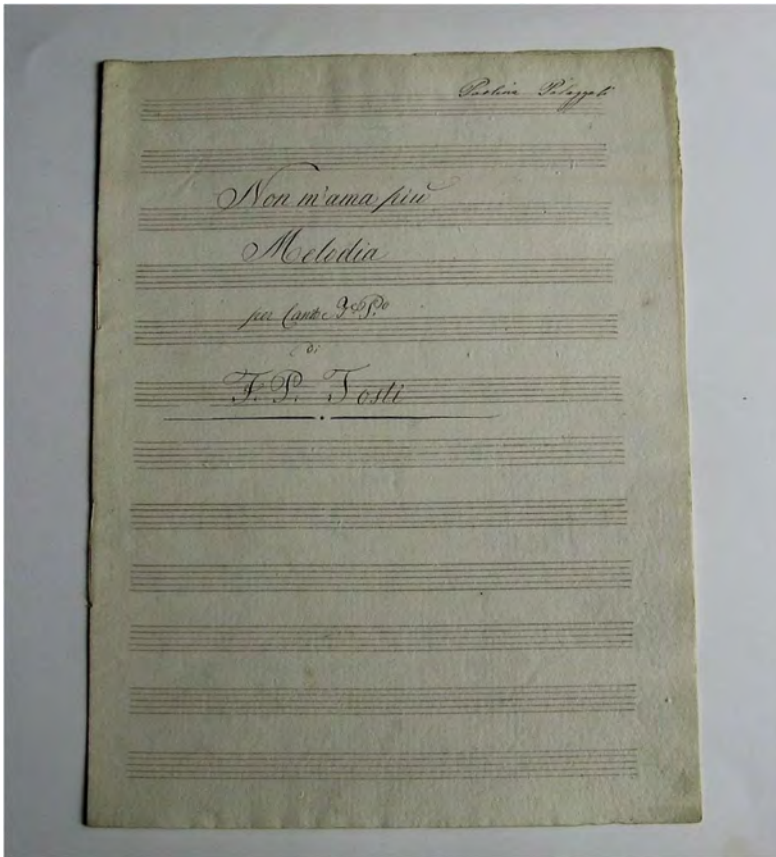 Paolina Palazzoli
Non m'ama più
Melodia
per Canto e
di
F. P. Tosti